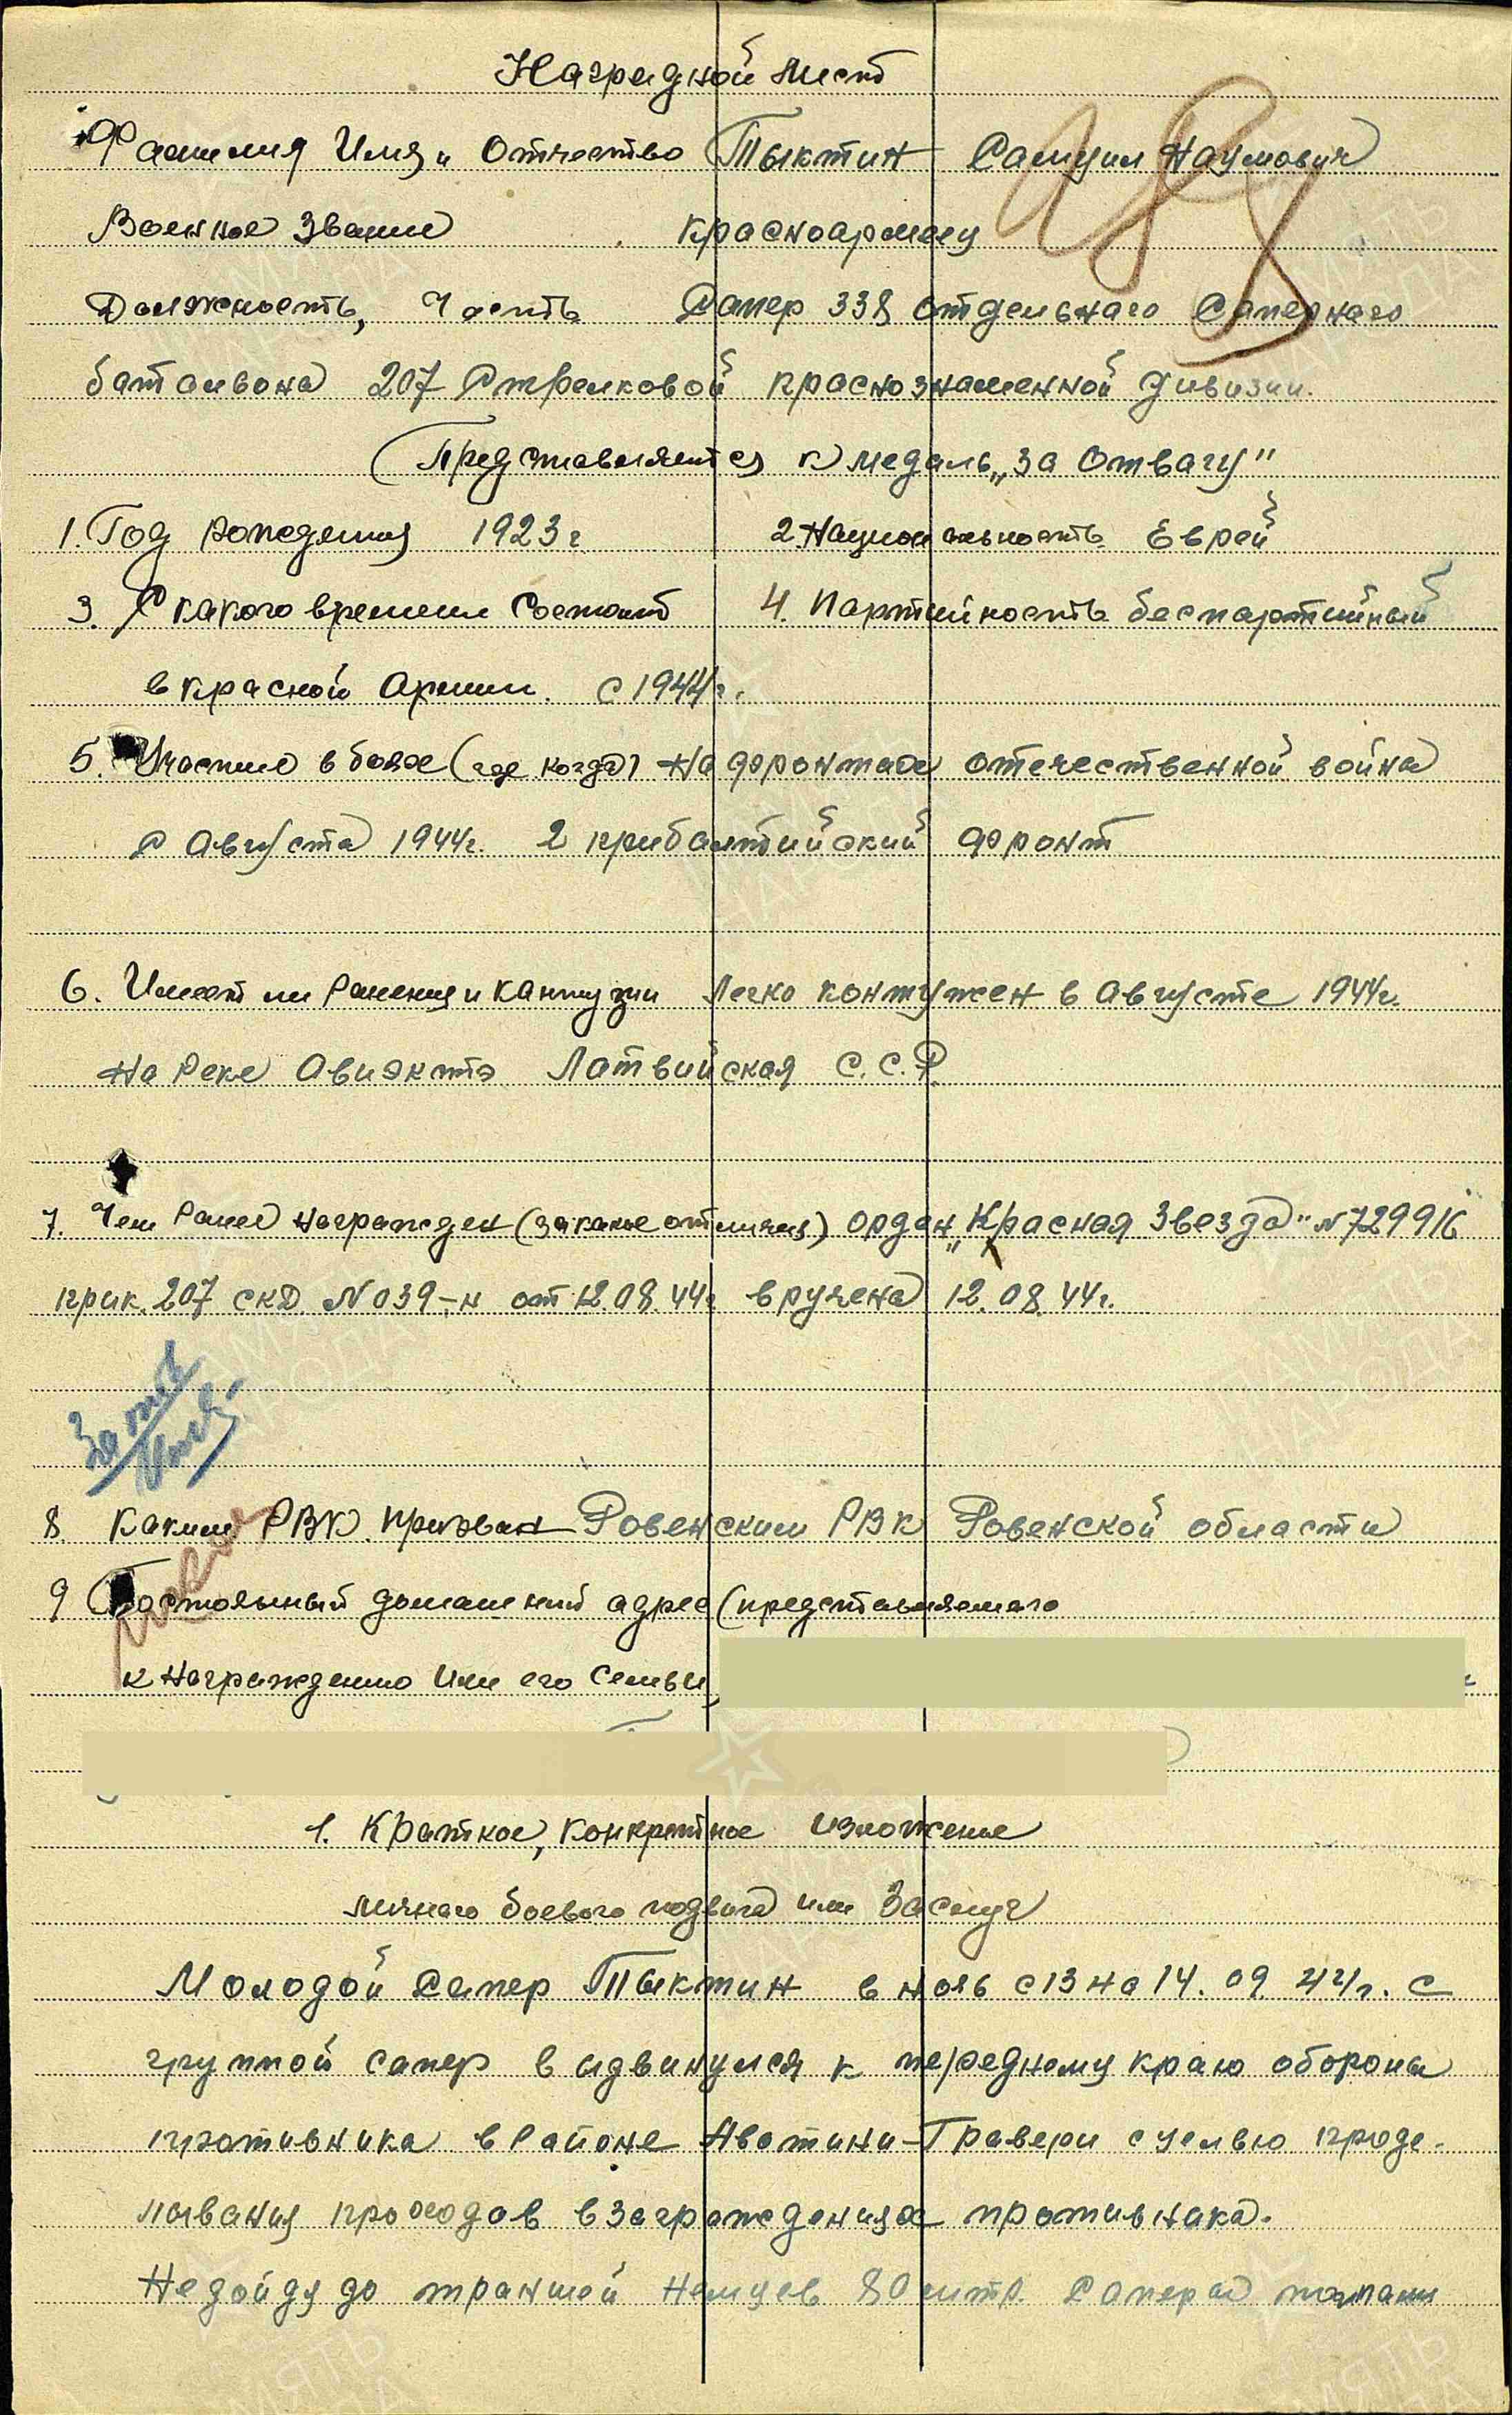 Наградной лист
Фамилия Имя и Отчество Тыктин Самуил Наумович
Военное звание красноармеец
Должность, Часть Сапер 338 отдельнаго Сапернаго
батальона 207 Стрелковой краснознаменной дивизии.
Представляется к медаль „За Отвагу"
1. Год рождения 1923 г 2. Национальность Еврей
3. С какого времени состоит 4. Партийность беспартийный
в красной Армии. с 1944 г.
5. Участие в боях (где когда) На фронтах отечественной война
с Августа 1944 г. 2 прибалтийский фронт
6. Имеет ли Ранения и кантузии Легко контужен в Августе 1944 г.
на Реке Авиэкстэ Латвийская С.С.Р.
7. Чем Ранее награжден (за какие отличия) орден „Красная Звезда" N 729916
прик. 207 скд N 039-н от 12.08.44 г вручена 12.08.44 г.
8. Каким РВК призван Ровенским РВК Ровенской области
9 Постоянный домашний адрес (представляемаго
к награждению или его семьи,
1. Краткое, конкретное изложение
личнаго боевого подвига или Заслуг
Молодой Сапер Тыктин в ночь с 13 на 14. 09 44 г. с
группой сапер выдвинулся к переднему краю обороны
противника в Районе Авотини-Гравери с целью проде-
лывания проходов в заграждениях противника.
Не дойдя до траншей немцев 80 мтр. Сапера
ПАМЯТЬ
НАРОДА